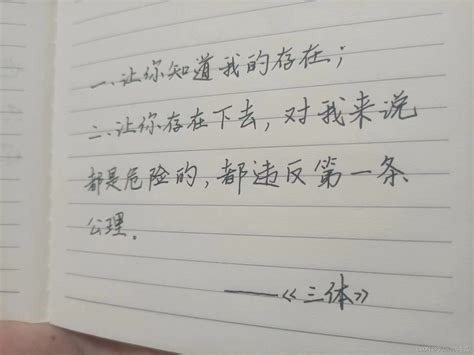 一、让你知道我的存在；
二、让你存在下去，对我来说
都是危险的，都违反第一条
公理。
——《三体》